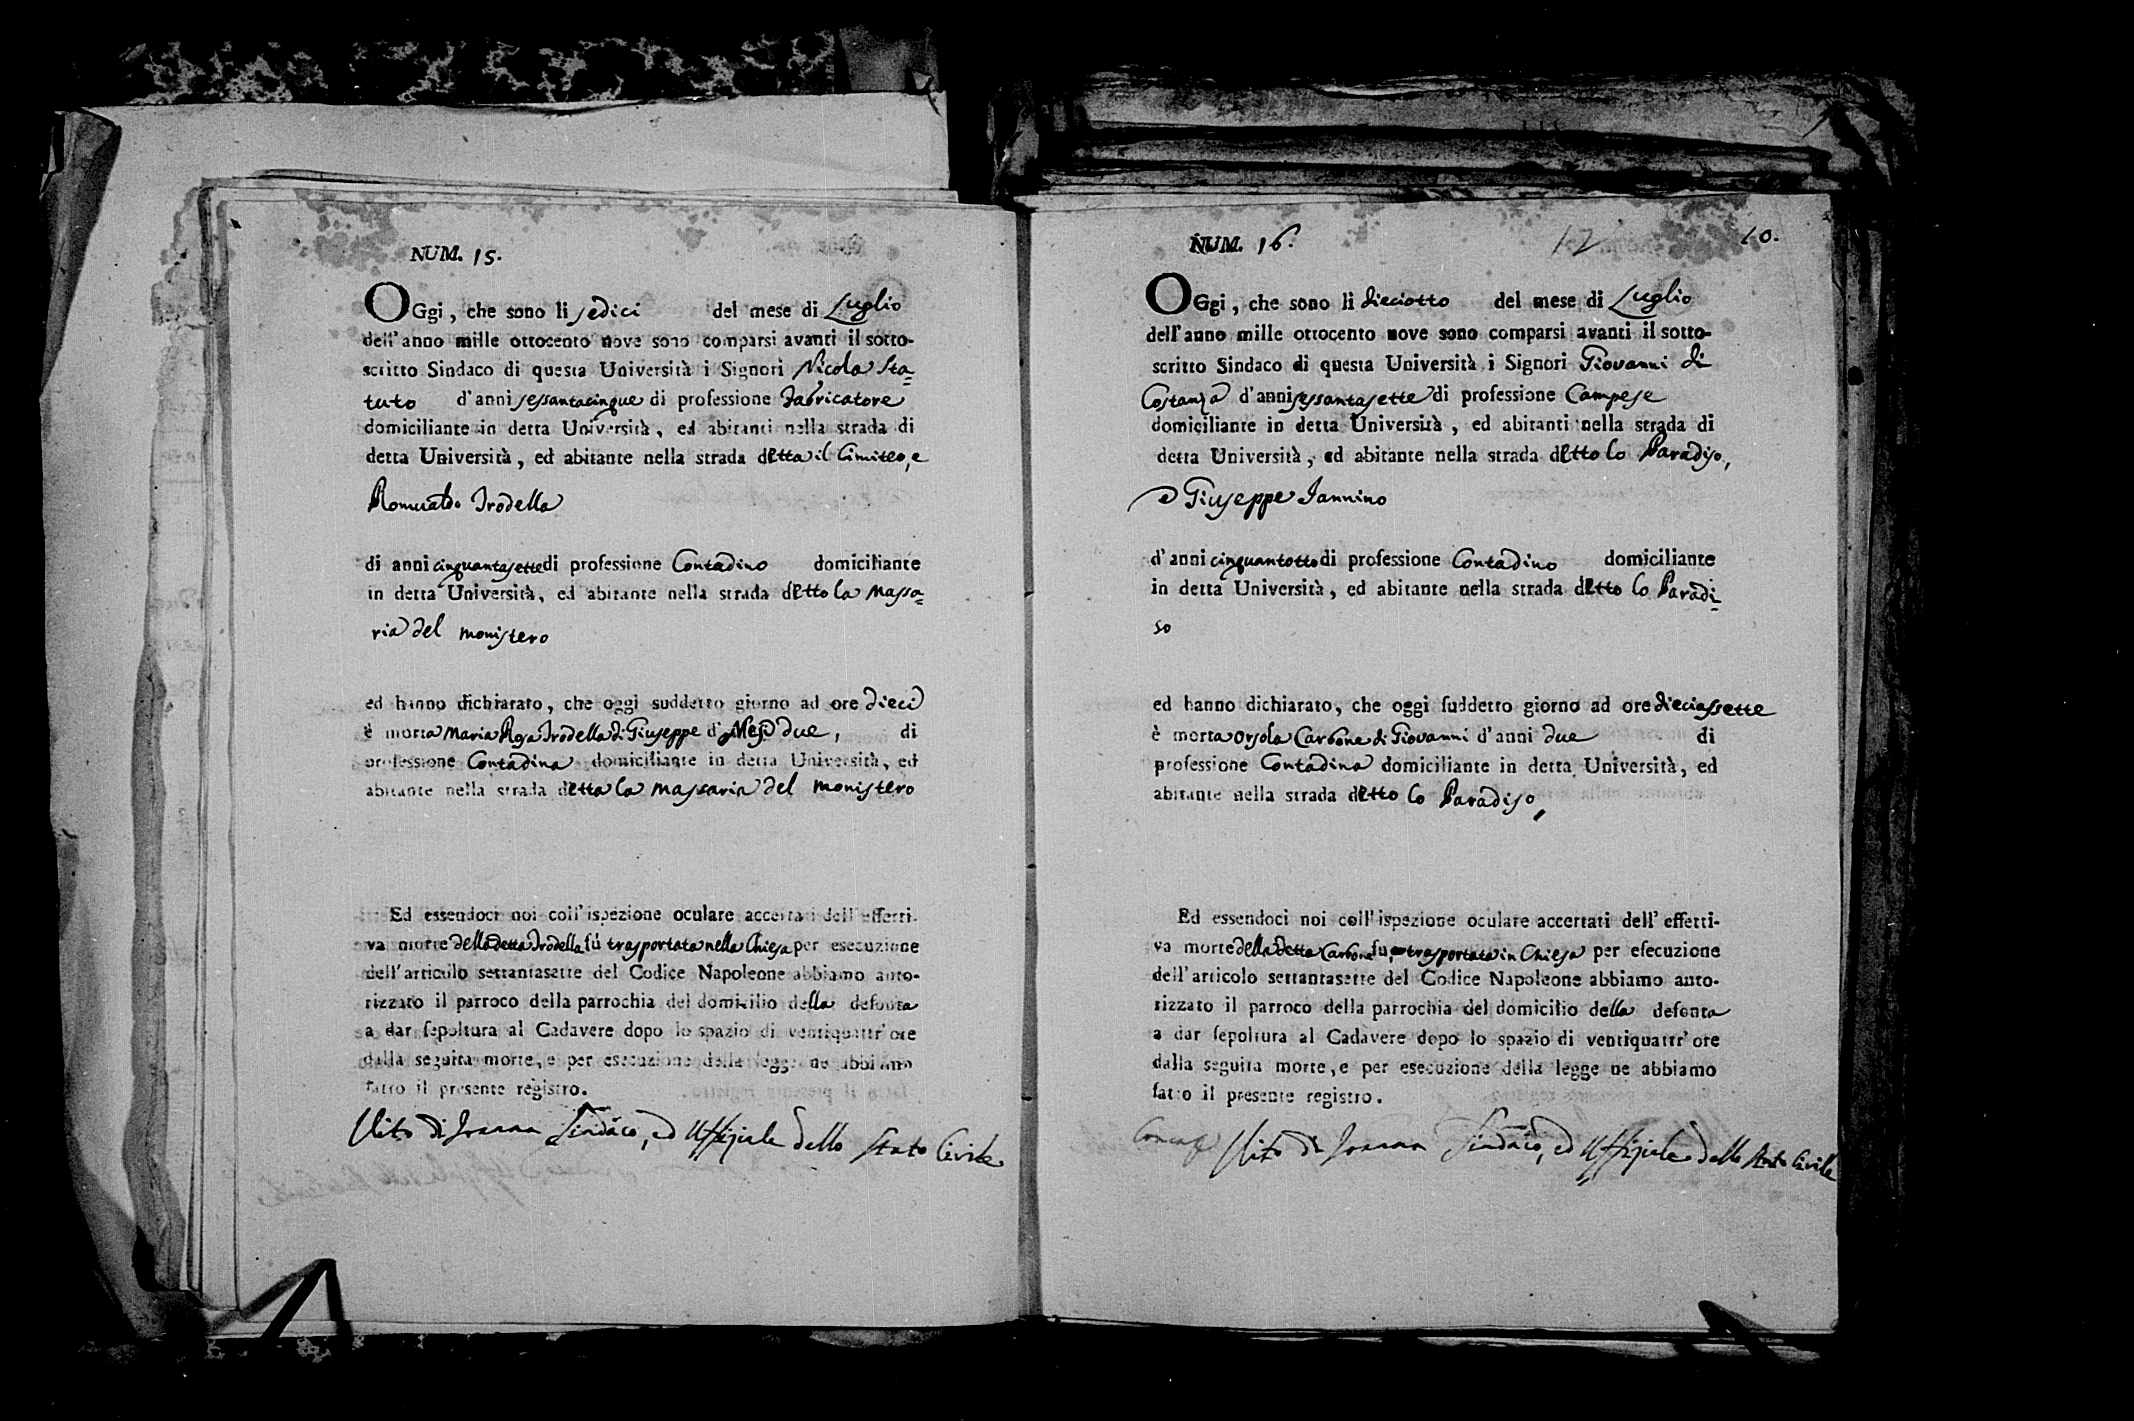 NUM. 15.
OGgi, che sono li sedici del mese di Luglio
dell'anno mille ottocento nove sono comparsi avanti il sotto-
scritto Sindaco di questa Università i Signori Nicola Sta=
tuto d'anni sessantacinque di professione Fabricatore
domiciliante in detta Università, ed abitanti nella strada di
detta Università, ed abitante nella strada detta il Cimiteo, e
Romualdo Irodella
di anni cinquantasette di professione Contadino domiciliante
in detta Università, ed abitante nella strada detto la Massa=
ria del monistero
ed hanno dichiarato, che oggi suddetto giorno ad ore dieci
è morta Maria Rosa Irodella di Giuseppe d' Mesi due, di
professione Contadina domiciliante in detta Università, ed
abitante nella strada detta la massaria del monistero
Ed essendoci noi coll'ispezione oculare accertati dell'effetti-
va morte della detta Irodella fù trasportata nella Chiesa per esecuzione
dell'articolo settantasette del Codice Napoleone abbiamo auto-
rizzato il parroco della parrochia del domicilio della defonta
a dar sepoltura al Cadavere dopo lo spazio di ventiquattr'ore
dalla seguita morte, e per esecuzione della legge ne abbiamo
fatto il presente registro.
Vito di Ioanna Sindaco, ed Uffiziale dello Stato Civile
NUM. 16.
12
10.
OGgi, che sono li dieciotto del mese di Luglio
dell'anno mille ottocento nove sono comparsi avanti il sotto-
scritto Sindaco di questa Università i Signori Giovanni di
Costanza d'anni sessantasette di professione Campese
domiciliante in detta Università, ed abitanti nella strada di
detta Università, ed abitante nella strada detto lo Paradiso,
e Giuseppe Iannino
d'anni cinquantotto di professione Contadino domiciliante
in detta Università, ed abitante nella strada detto lo Paradi=
so
ed hanno dichiarato, che oggi suddetto giorno ad ore dieciassette
è morta Orsola Carbone di Giovanni d'anni due di
professione Contadina domiciliante in detta Università, ed
abitante nella strada detto lo Paradiso,
Ed essendoci noi coll'ispezione oculare accertati dell'effetti-
va morte della detta Carbone fù trasportata in Chiesa per esecuzione
dell'articolo settantasette del Codice Napoleone abbiamo auto-
rizzato il parroco della parrochia del domicilio della defonta
a dar sepoltura al Cadavere dopo lo spazio di ventiquattr'ore
dalla seguita morte, e per esecuzione della legge ne abbiamo
fatto il presente registro.
Vito di Ioanna Sindaco, ed Uffiziale dello Stato Civile